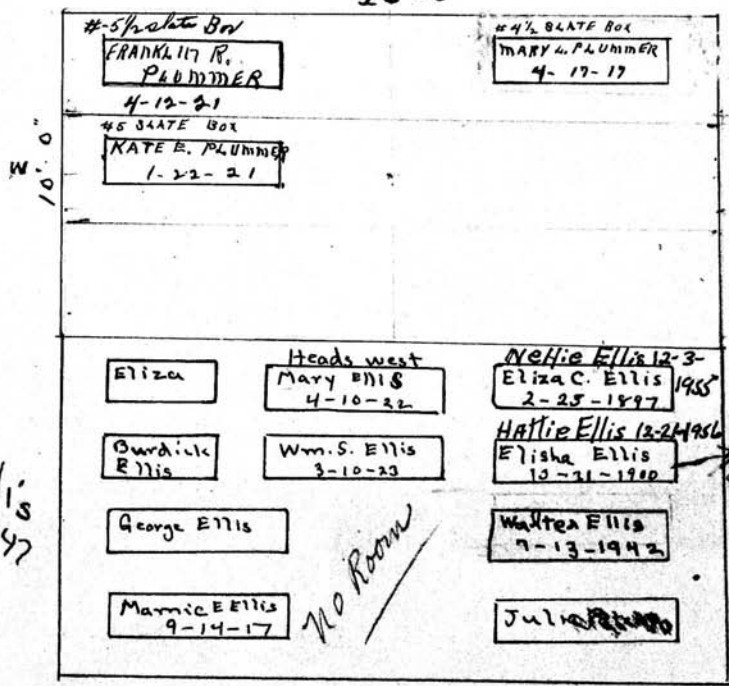 #-5½ slate Box
FRANKLIN R.
PLUMMER
4-12-21
#4½ SLATE BOX
MARY L. PLUMMER
4-17-17
#5 SLATE BOX
KATE E. PLUMMER
1-22-21
W
10' 0"
Eliza
Heads west
Mary Ellis
4-10-22
Nellie Ellis 12-3-
1955
Eliza C. Ellis
2-25-1897
Burdick
Ellis
Wm. S. Ellis
3-10-23
Hattie Ellis
Elisha Ellis
George Ellis
No Room
Walter Ellis
7-13-1942
Mamie E Ellis
9-14-17